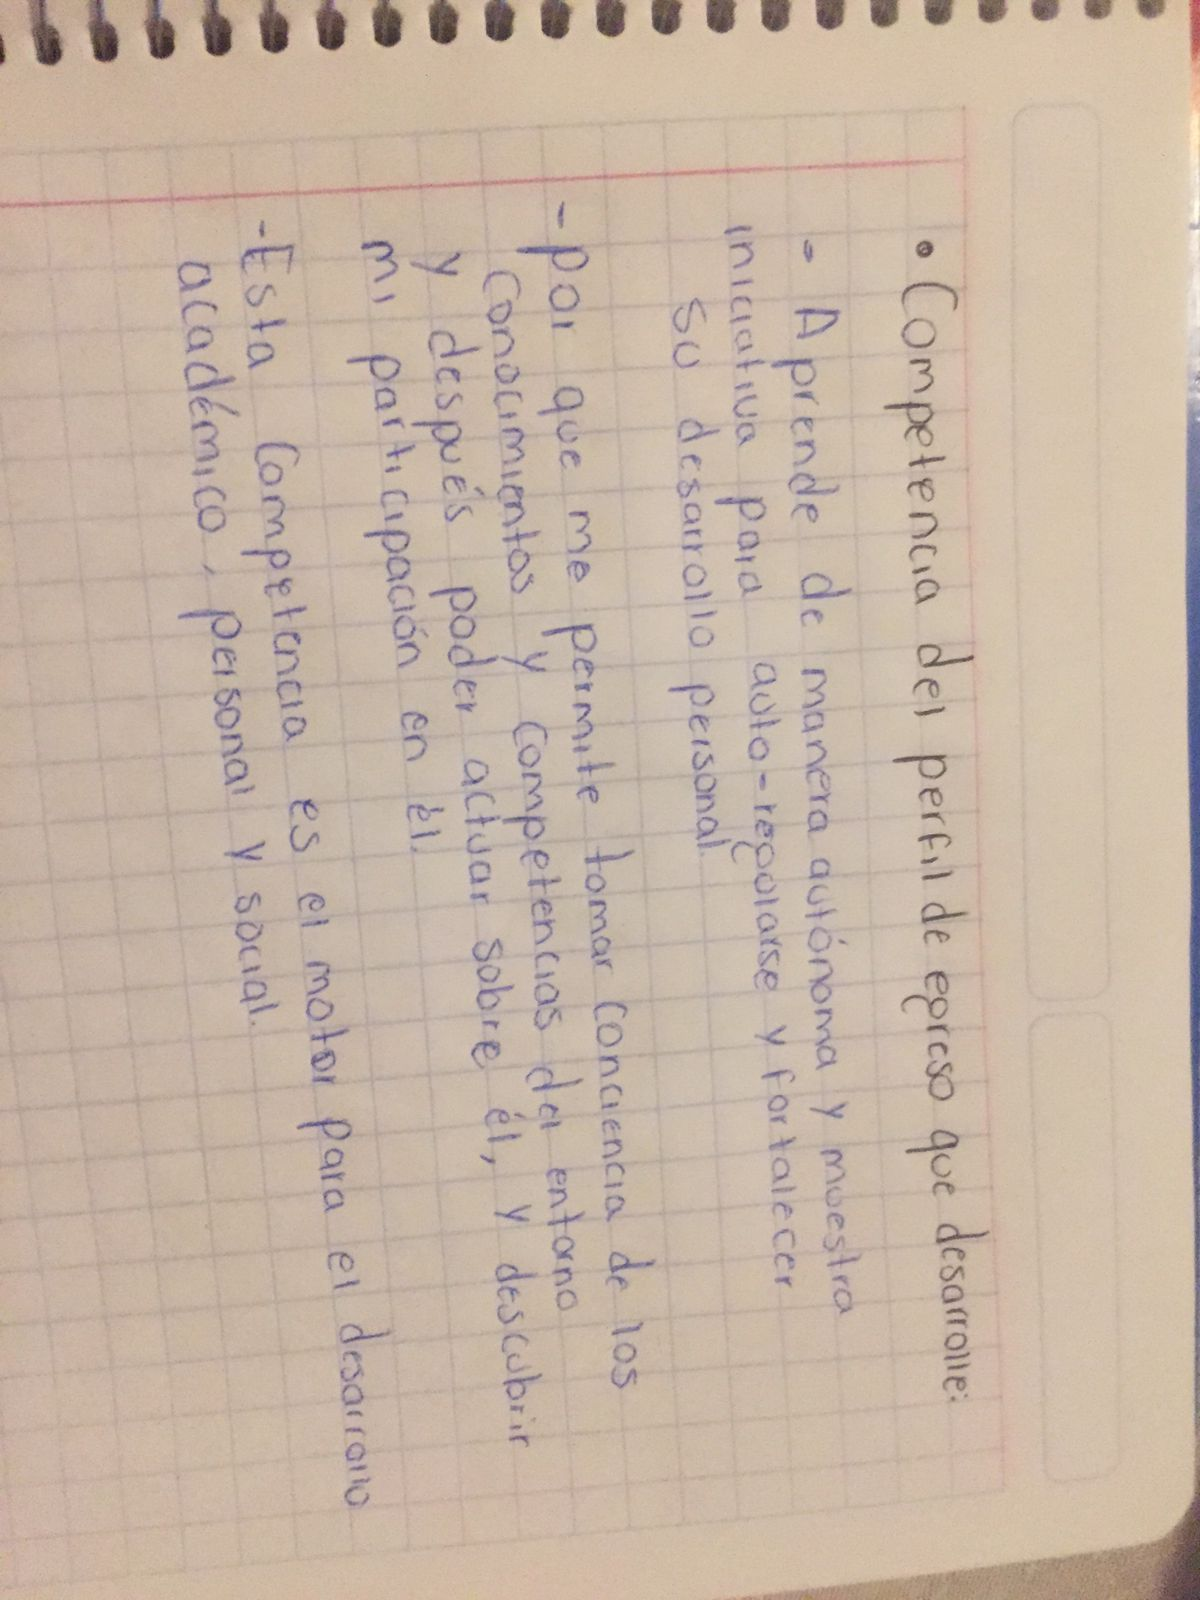 • Competencia del perfil de egreso que desarrolle:
- Aprende de manera autónoma y muestra
iniciativa para auto-regularse y fortalecer
su desarrollo personal.
- por que me permite tomar conciencia de los
conocimientos y competencias del entorno
y después poder actuar sobre él, y descubrir
mi participación en él.
- Esta competencia es el motor para el desarrollo
académico, personal y social.